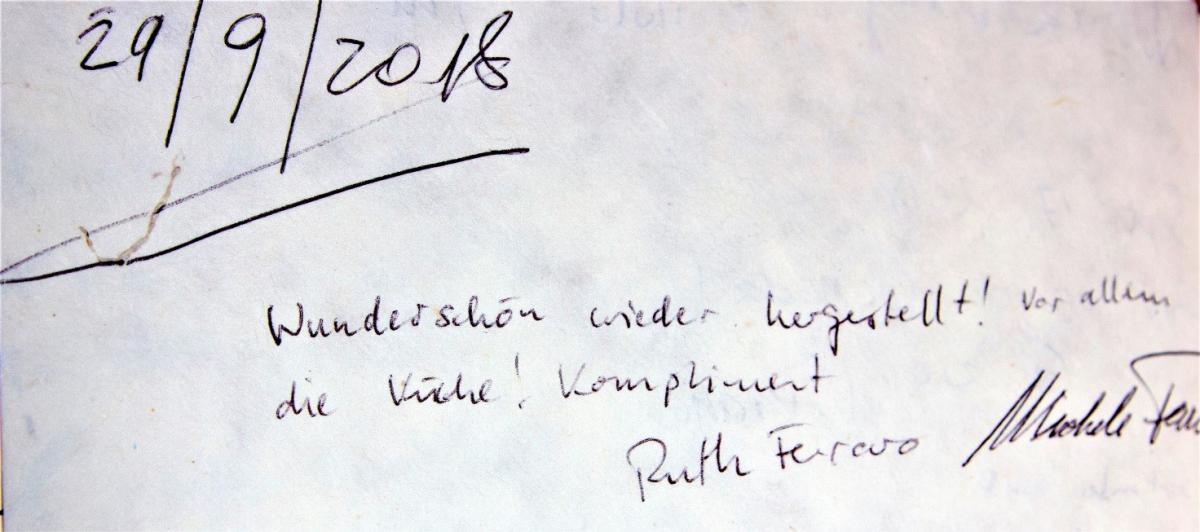 29/9/2018
Wunderschön wieder hergestellt! Vor allem
die Küche! Kompliment
Ruth Ferraro Michele